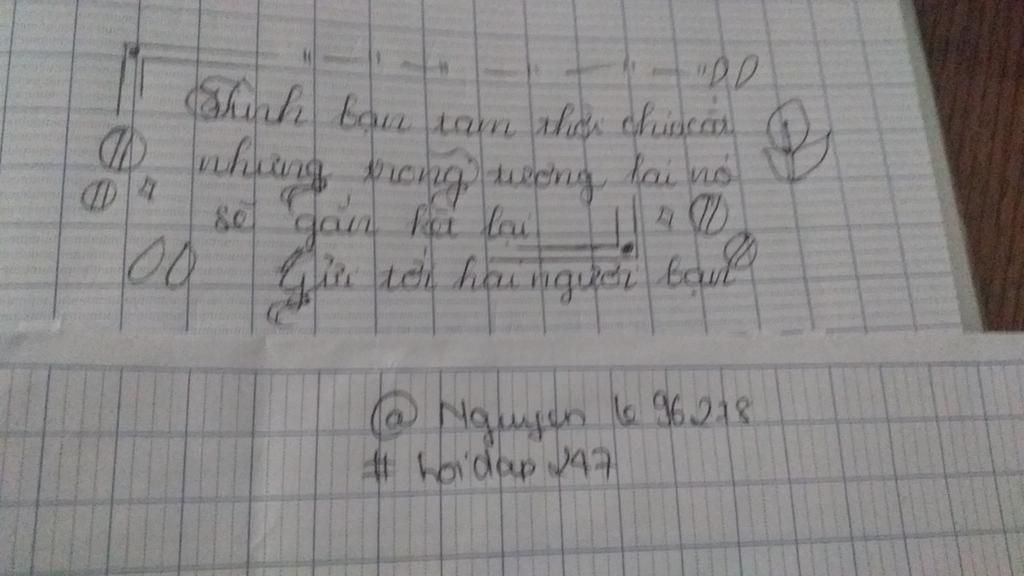 Tình bạn tạm thời chia cắt
nhưng trong tương lai nó
sẽ gắn kết lại
Gửi tới hai người bạn
@ Nguyen le 96278
# hoidap 247